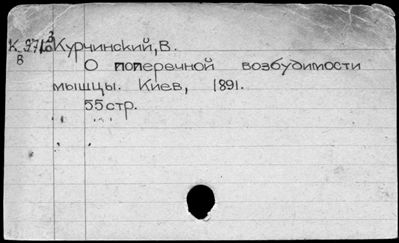 Курчинский, В.
О поперечной возбудимости
мышцы. Киев, 1891.
55 стр.